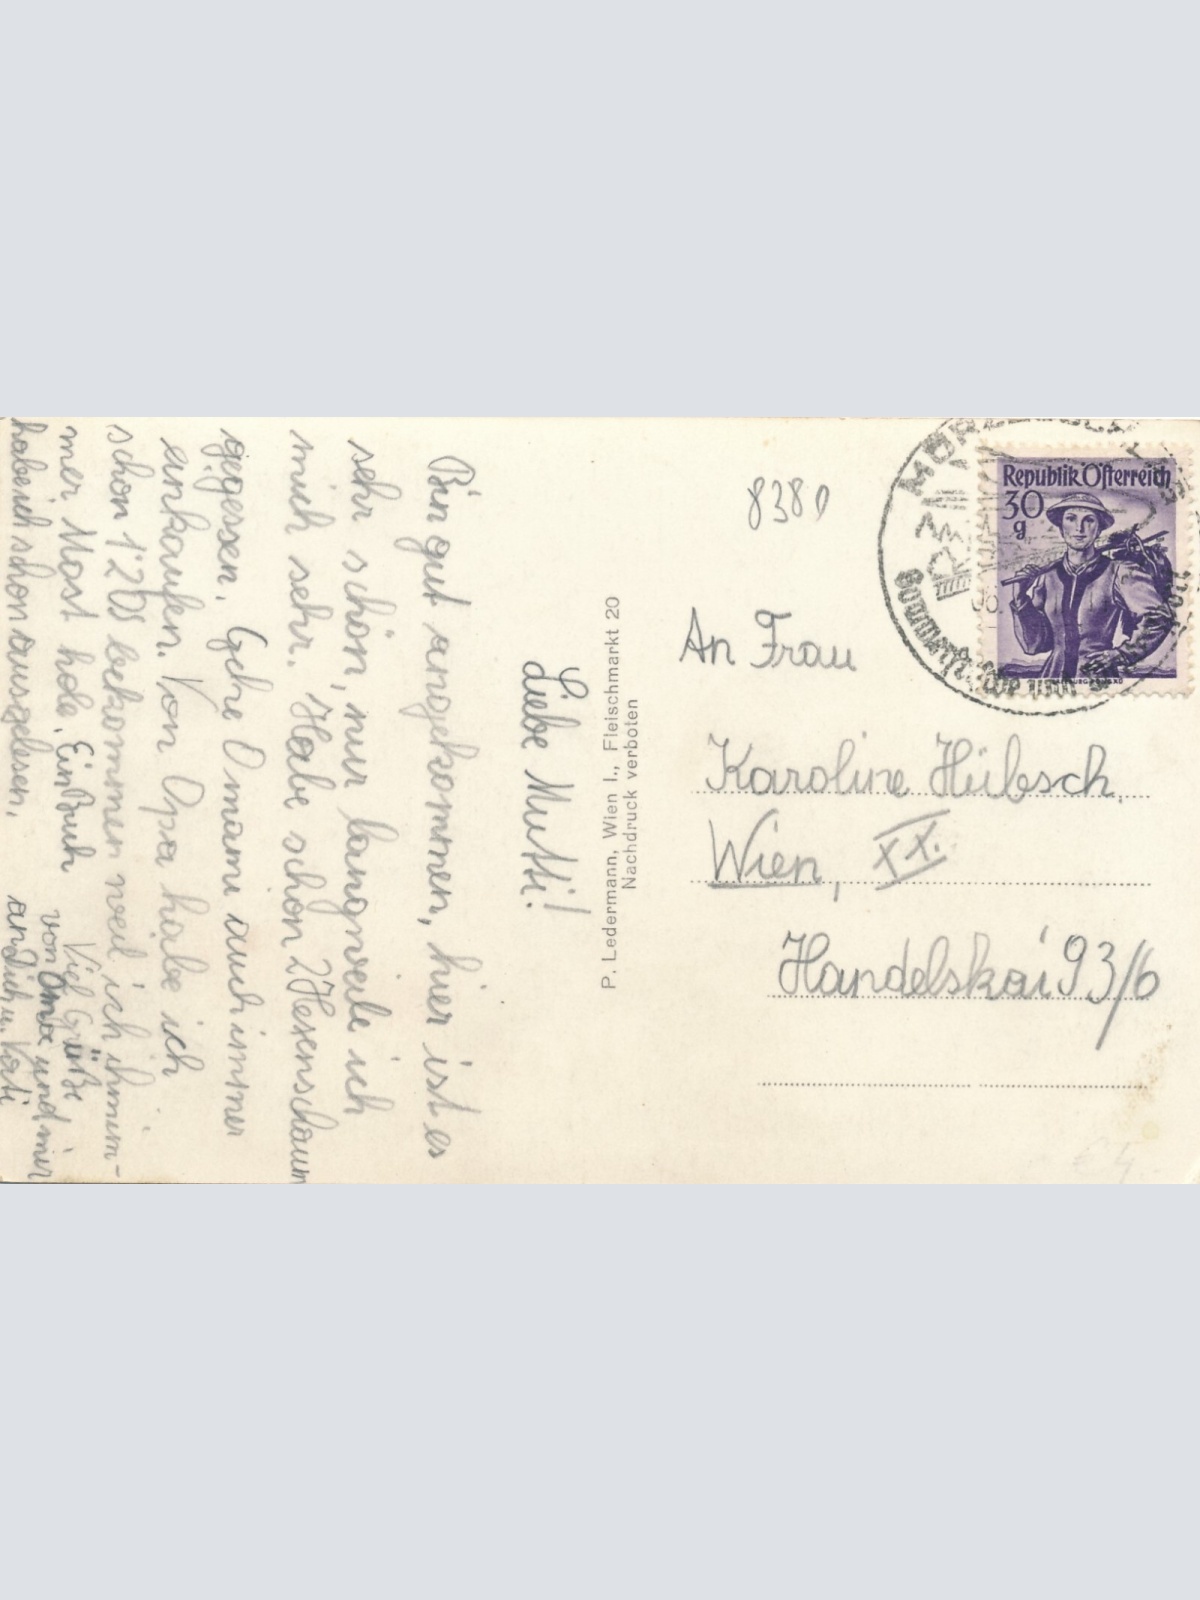 Liebe Mutti!
Bin gut angekommen, hier ist es
sehr schön, nur langweile ich
mich sehr. Habe schon 2 Hexenschaum
gegessen. Gehe Omami auch immer
einkaufen. Von Opa habe ich
schon 12S bekommen weil ich ihm im-
mer Most hole. Ein Buch
habe ich schon ausgelesen.
Viel Grüße
von Oma und mir
an Dich u. Vati
P. Ledermann, Wien I., Fleischmarkt 20
Nachdruck verboten
8380
Republik Österreich
30
g
Sommerfrische und
An Frau
Karoline Hübsch.
Wien, XX.
Handelskai 93/6